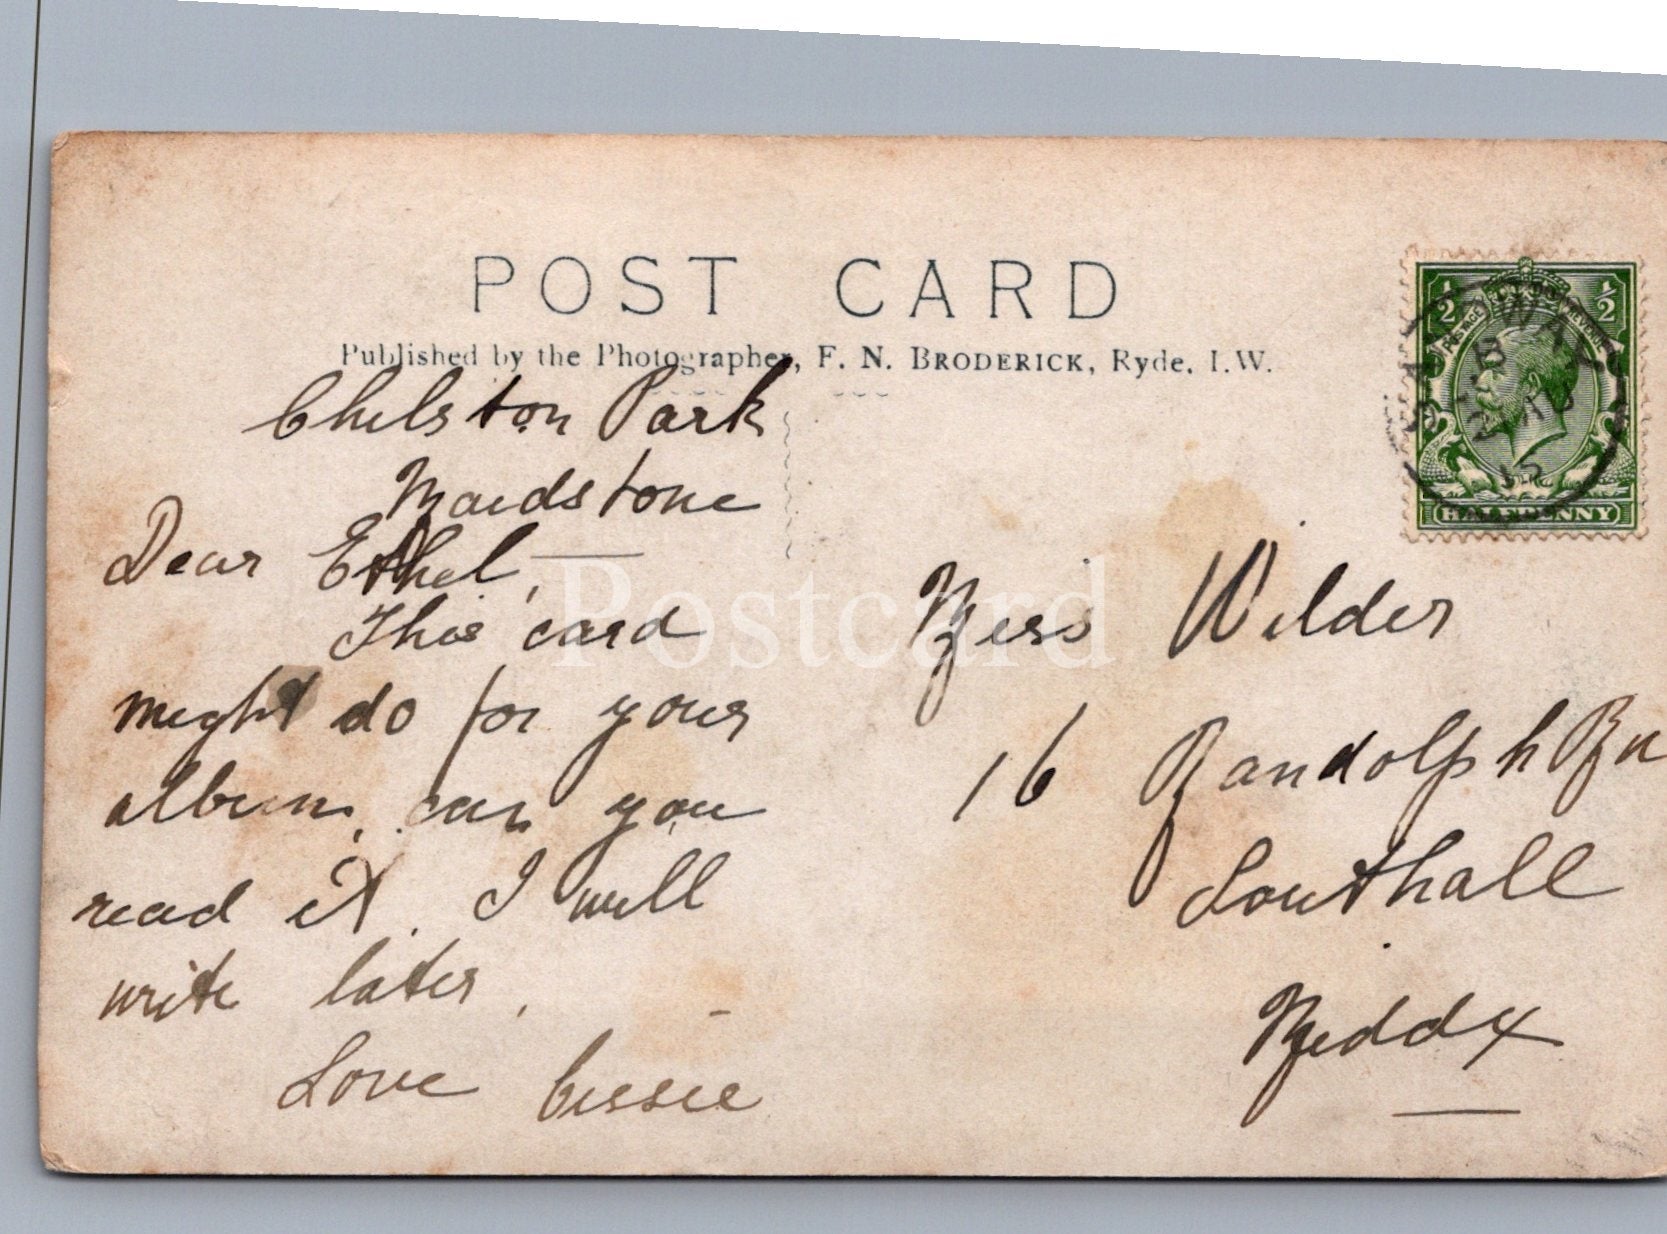 POST CARD
Published by the Photographer, F. N. BRODERICK, Ryde, I.W.
Chelston Park
Maidstone
Dear Ethel,
This card
might do for your
album, can you
read it. I will
write later.
Love Cissie
Miss Wilder
16 Randolph
Southall
Middx
Postcard
POSTAGE REVENUE
1/2 1/2
HALFPENNY
15